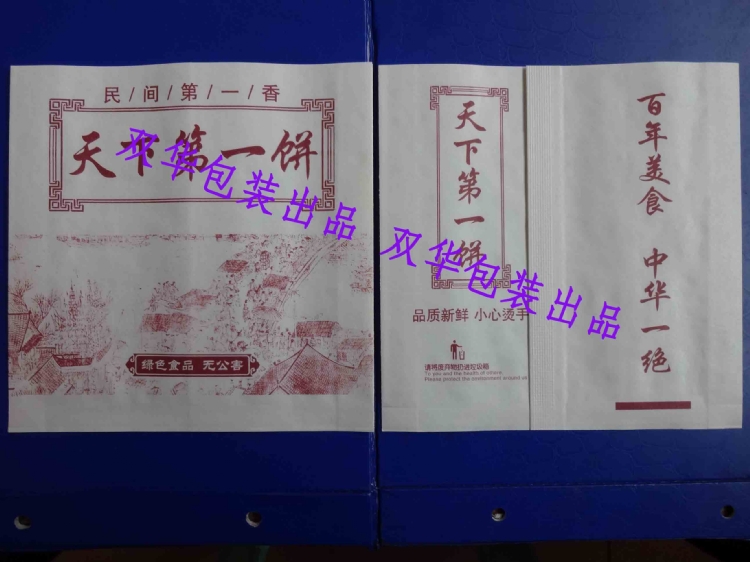 民/间/第/一/香
天下第一饼
双华包装出品
绿色食品 无公害
天下第一饼
双华包装出品
品质新鲜 小心烫手
请将废弃物扔进垃圾箱
To you and the health of others,
Please protect the environment around us
百年美食 中华一绝